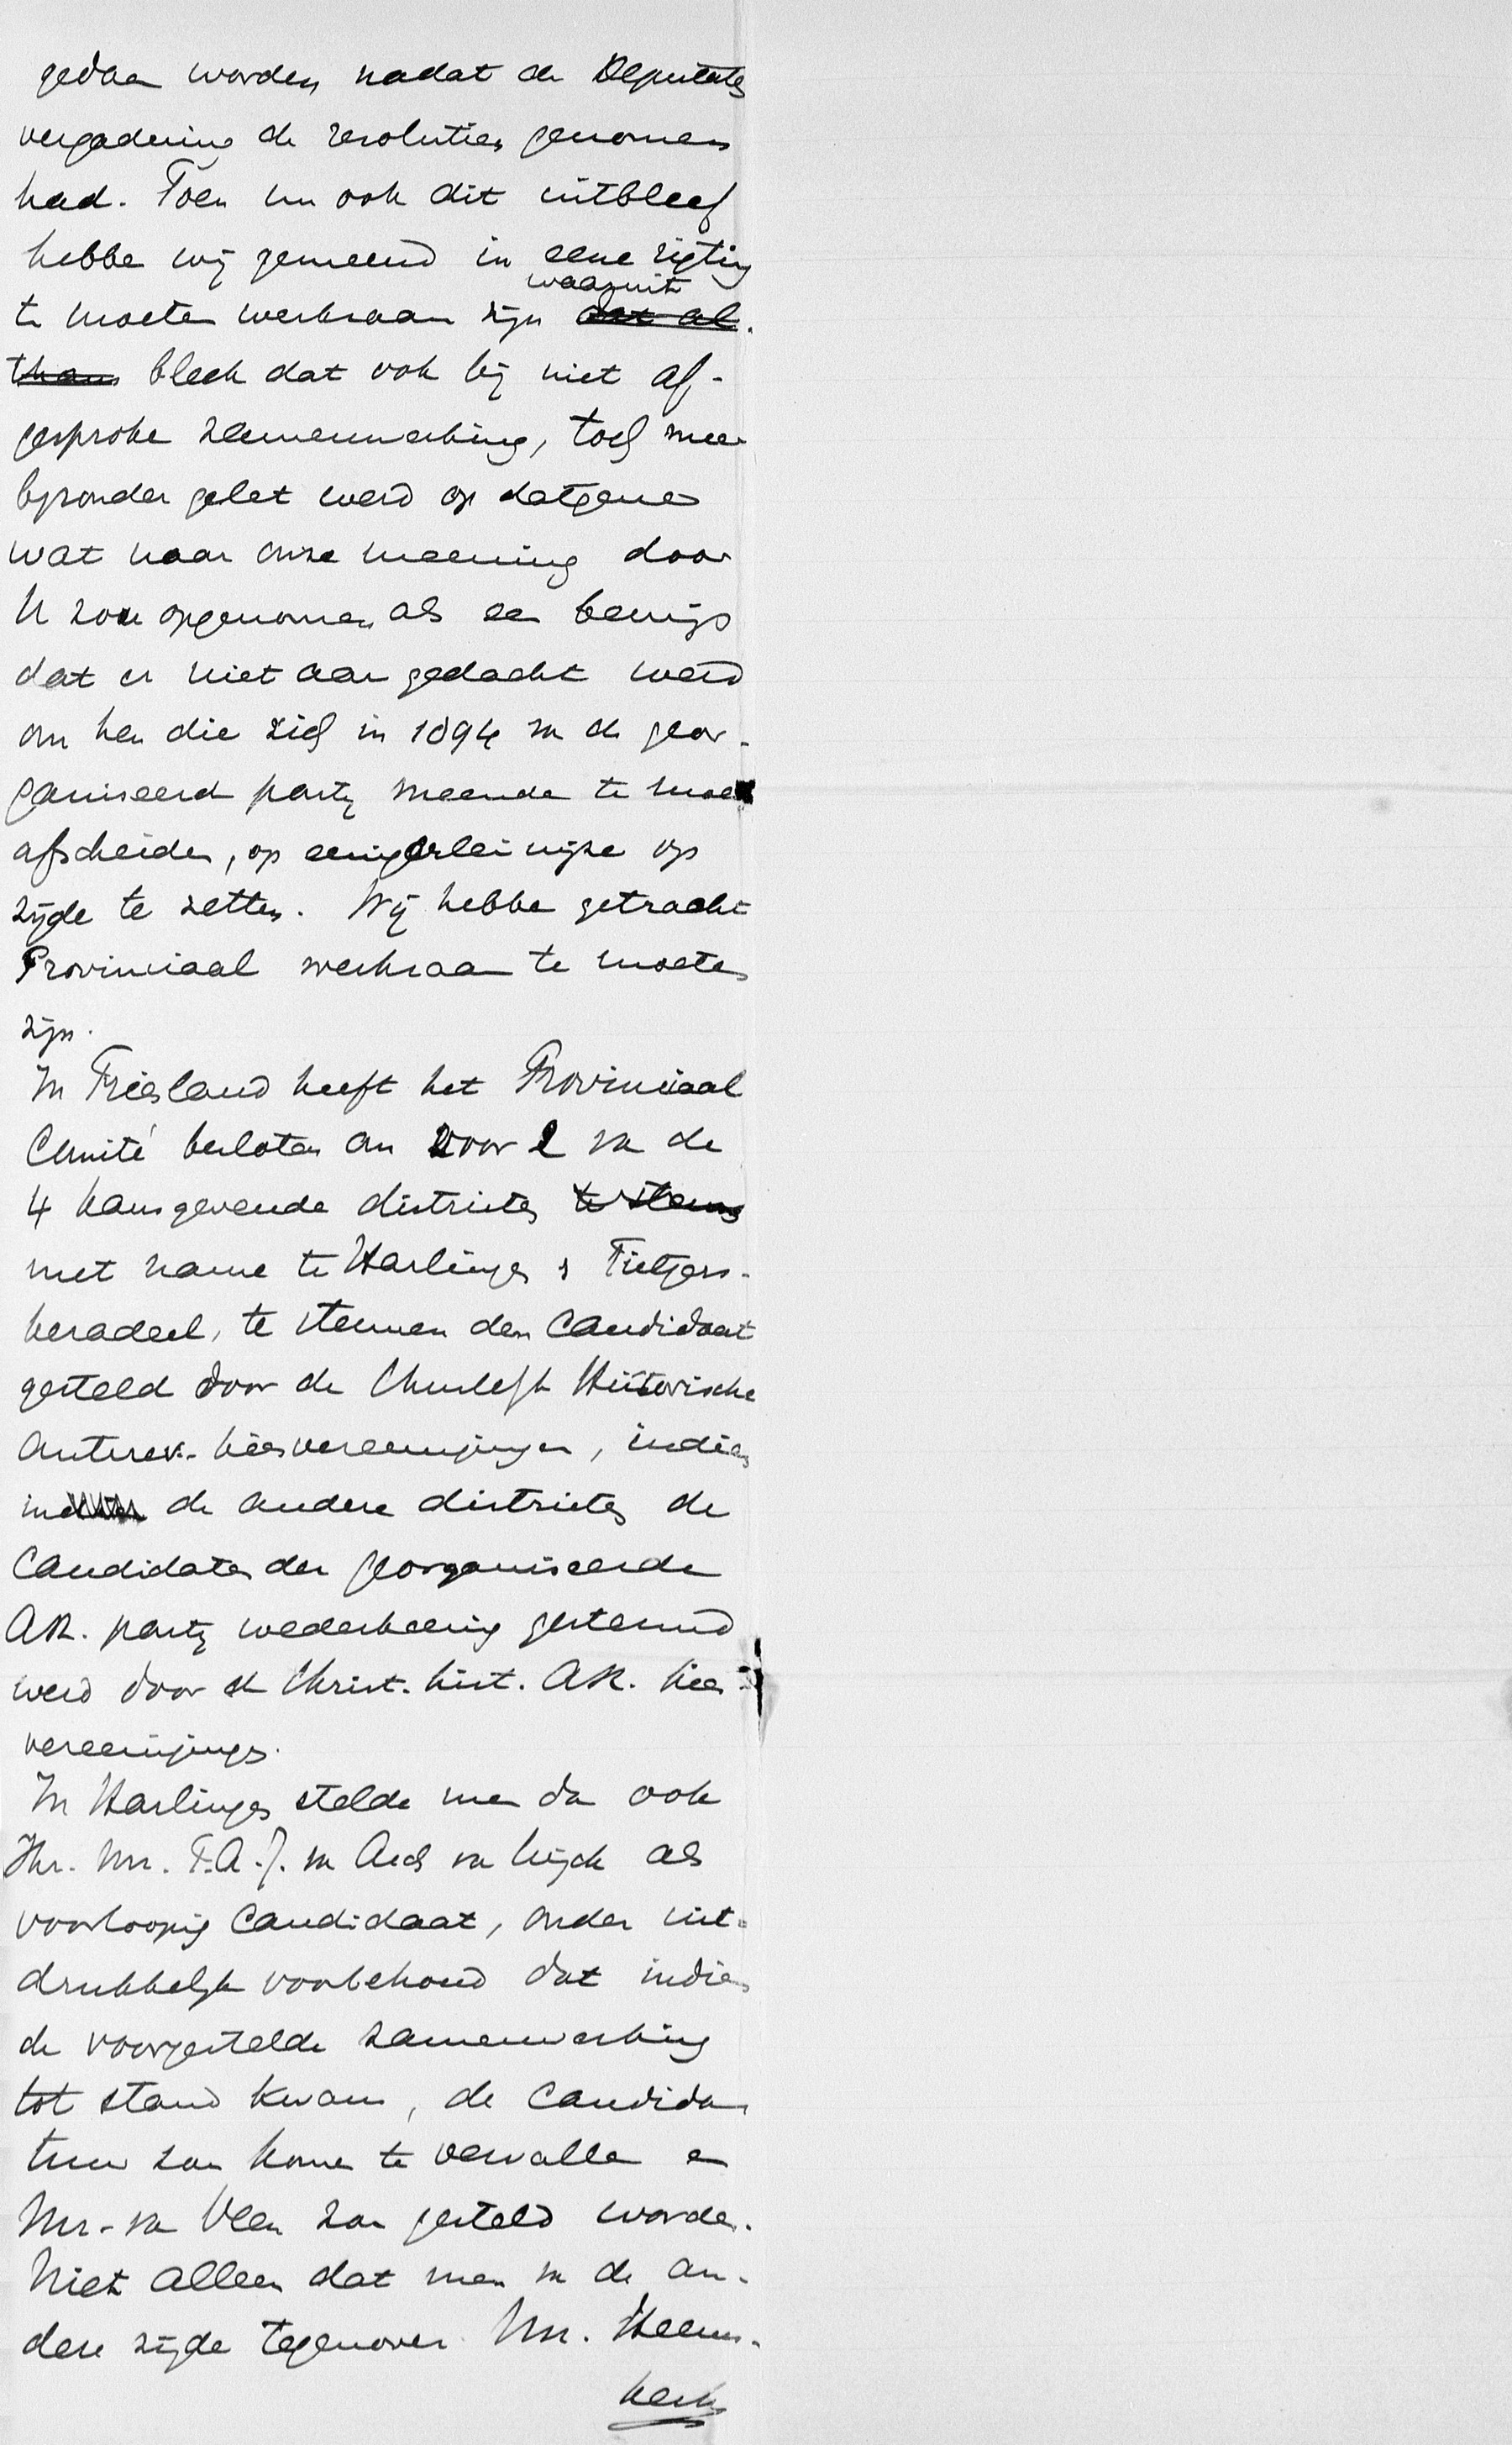 gedaan worden nadat de Deputaten
vergadering de resolutien genomen
had. Toen nu ook dit uitbleef
hebben wij gemeend in eene rigting
waaruit
te moeten werkzaam zijn dat al.
thans bleek dat ook bij niet af-
gesproken zamenwerking, toch meer
byzonder gelet werd op datgene
wat naar onze meening door
U zou opgenomen als een bewijs
dat er niet aan gedacht werd
om hen die zich in 1894 van de geor-
ganiseerde party meenden te moeten
afscheiden, op eenigerlei wijze op
zijde te zetten. Wij hebben getracht
Provinciaal werkzaam te moeten
zijn.
In Friesland heeft het Provinciaal
Comité besloten om voor 2 van de
4 kansgevende districten te steunen
met name te Harlingen & Tietjerk-
steradeel, te steunen den Candidaat
gesteld door de Christelijk Historische
Antirev. kiesvereenigingen, indien
in de andere districten de
Candidaten der georganiseerde
AR. party wederkeerig gesteund
werd door de Christ. hist. AR. kies-
vereenigingen.
In Harlingen stelde men dan ook
Jhr. Mr. F.A.J. van Asch van Wijck als
voorloopig Candidaat, onder uit-
drukkelijk voorbehoud dat indien
de voorgestelde zamenwerking
tot stand kwam, de Candida
tuur zou komen te vervallen en
Mr. van Veen zou gesteld worden.
Niet alleen dat men van de an-
dere zijde tegenover Mr. Heems-
kerk